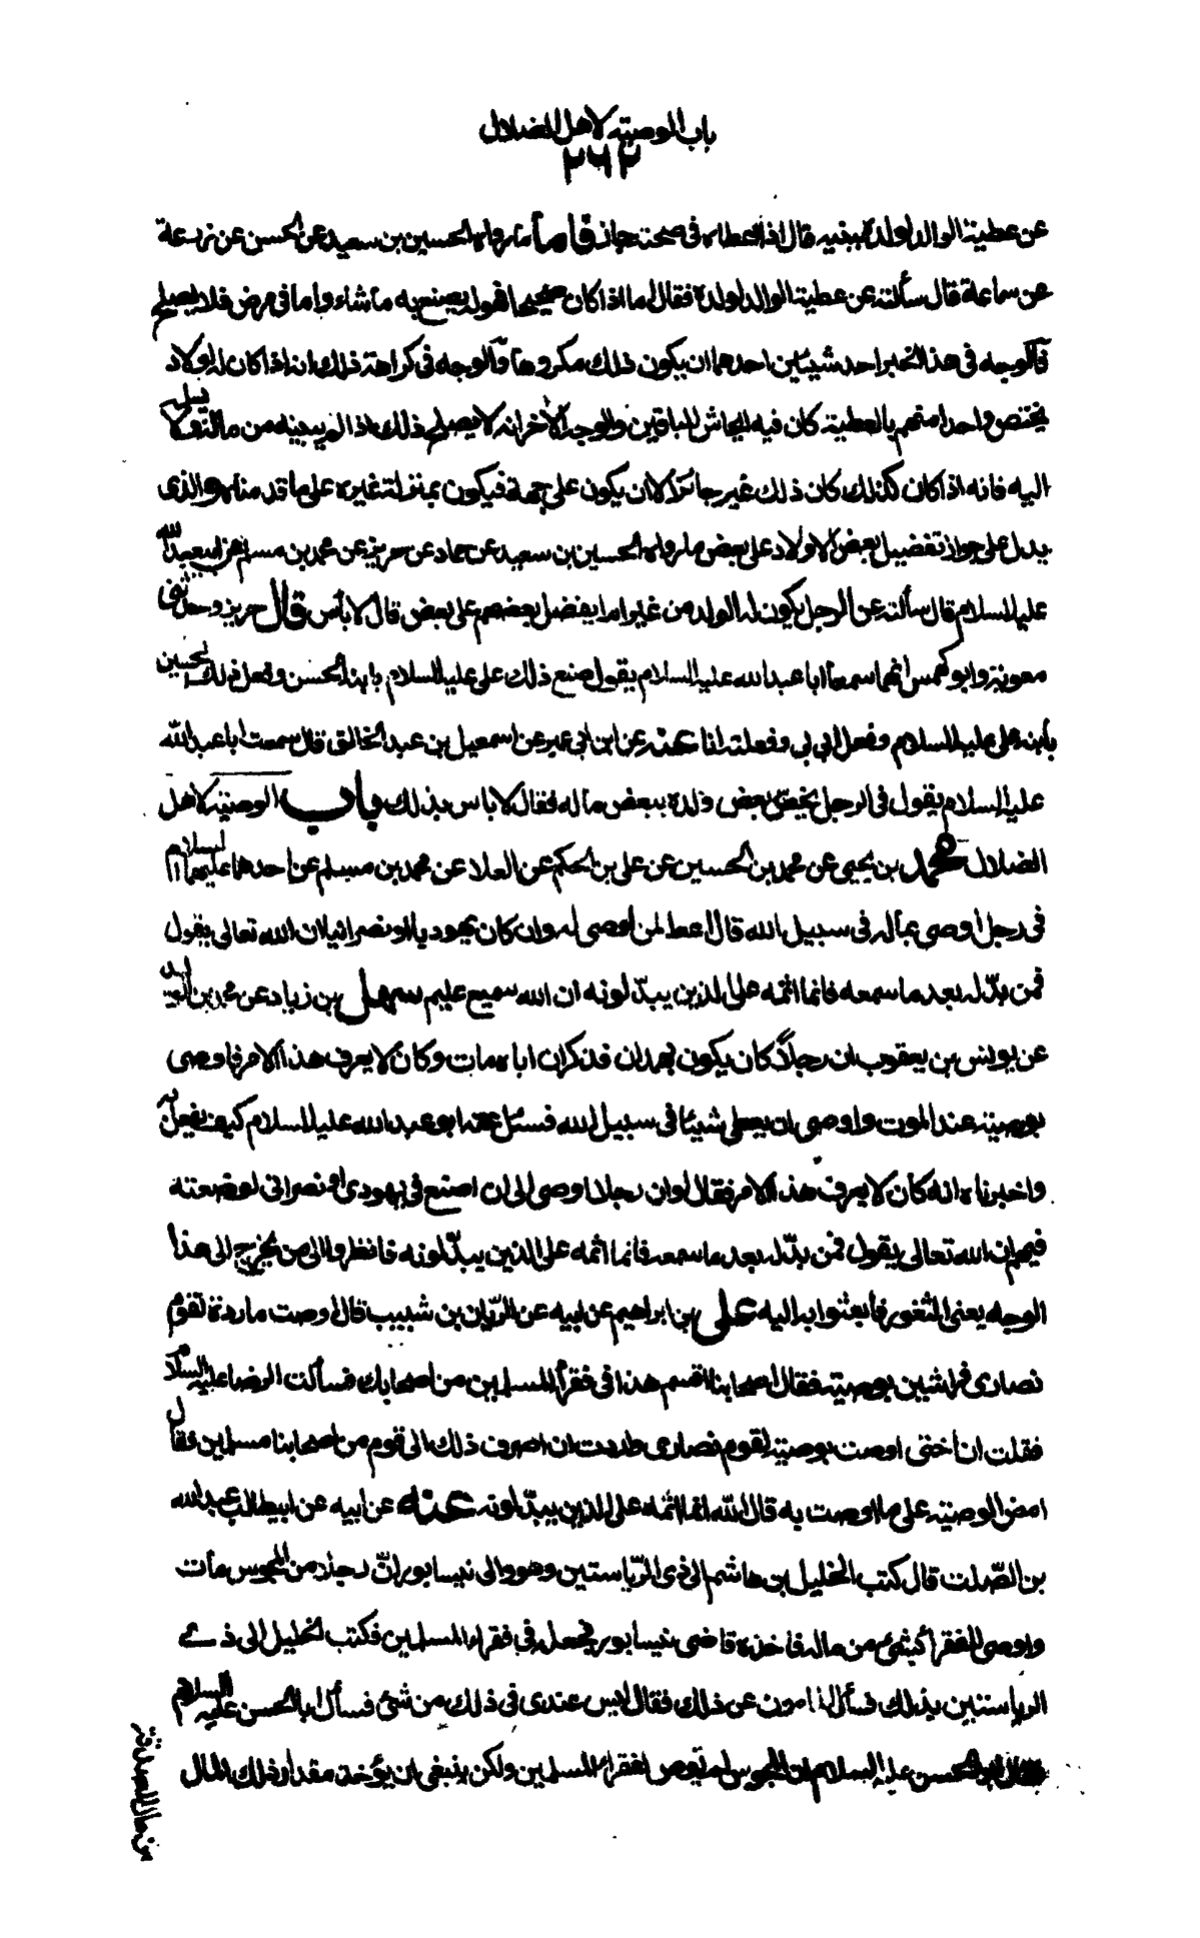 باب الوصية لاهل الضلال
٢٦٢
عن عطية الوالد لولده يبينه قال اذا اعطاه في صحته جاز فاما ما رواه الحسين بن سعيد عن الحسن عن زرعة
عن سماعة قال سألته عن عطية الوالد لولده فقال اما اذا كان صحيحا فهو له يصنع به ما شاء واما في مرض فلا يصلح
فالوجه في هذا الخبر احد شيئين احدهما ان يكون ذلك مكروها والوجه في كراهة ذلك انه اذا كان له اولاد
يختص واحدا منهم بالعطية كان فيه ايحاش للباقين والوجه الاخر انه لا يصلح ذلك اذا لم يبينه من ماله ولا يسلمه
اليه فانه اذا كان كذلك كان ذلك غير جائز الا ان يكون على جهة فيكون بمنزلة غيره على ما قدمناه والذي
يدل على جواز تفضيل بعض الاولاد على بعض ما رواه الحسين بن سعيد عن حماد عن حريز عن محمد بن مسلم عن ابي عبد الله
عليه السلام قال سألته عن الرجل يكون له الولد من غير ام ايفضل بعضهم على بعض قال لا بأس قال حريز وحدثني
معوية وابو كهمس انهما سمعا ابا عبد الله عليه السلام يقول صنع ذلك علي عليه السلام بابنه الحسن وفعل ذلك الحسين
بابنه علي عليه السلام وفعل ابي بي وفعلته انا عنه عن ابن ابي عمير عن اسمعيل بن عبد الخالق قال سمعت ابا عبد الله
عليه السلام يقول في الرجل يخص بعض ولده ببعض ماله فقال لا باس بذلك باب الوصية لاهل
الضلال محمد بن يحيى عن محمد بن الحسين عن علي بن الحكم عن العلا عن محمد بن مسلم عن احدهما عليهما السلام
في رجل اوصى بماله في سبيل الله قال اعط لمن اوصى له وان كان يهوديا او نصرانيا لان الله تعالى يقول
فمن بدّله بعد ما سمعه فانما اثمه على الذين يبدّلونه ان الله سميع عليم سهل بن زياد عن محمد بن الوليد
عن يونس بن يعقوب ان رجلا كان يكون بهمدان فذكر ان اباه مات وكان لا يعرف هذا الامر فاوصى
بوصية عند الموت واوصى ان يعطى شيئا في سبيل الله فسئل عنه ابو عبد الله عليه السلام كيف يفعل به
واخبرناه انه كان لا يعرف هذا الامر فقال لو ان رجلا اوصى الي ان اصنع في يهودي او نصراني لوضعته
فيهم ان الله تعالى يقول فمن بدّله بعد ما سمعه فانما اثمه على الذين يبدّلونه فانظروا الى من يخرج الى هذا
الوجه يعني الثغور فابعثوا به اليه علي بن ابراهيم عن ابيه عن الريّان بن شبيب قال اوصت ماردة لقوم
نصارى فراشين بوصية فقال اصحابنا اقسم هذا في فقرأ المسلمين من اصحابك فسألت الرضا عليه السلام
فقلت ان اختي اوصت بوصية لقوم نصارى واردت ان اصرف ذلك الى قوم من اصحابنا مسلمين فقال
امض الوصية على ما اوصت به قال الله انما اثمه على الذين يبدّلونه عنه عن ابيه عن ابي طالب عبد الله
بن الصّلت قال كتب الخليل بن هاشم الى ذي الرّياستين وهو والي نيسابور انّ رجلا من المجوس مات
واوصى للفقرأ بشئ من ماله فاخذه قاضي نيسابور فجعله في فقراء المسلمين فكتب الخليل الى ذي
الرياستين بذلك فسأل المامون عن ذلك فقال ليس عندي في ذلك من شئ فسأل ابا الحسن عليه السلام
فقال ابو الحسن عليه السلام ان المجوسي لم يوص لفقراء المسلمين ولكن ينبغي ان يؤخذ مقدار ذلك المال
من مال الصدقة